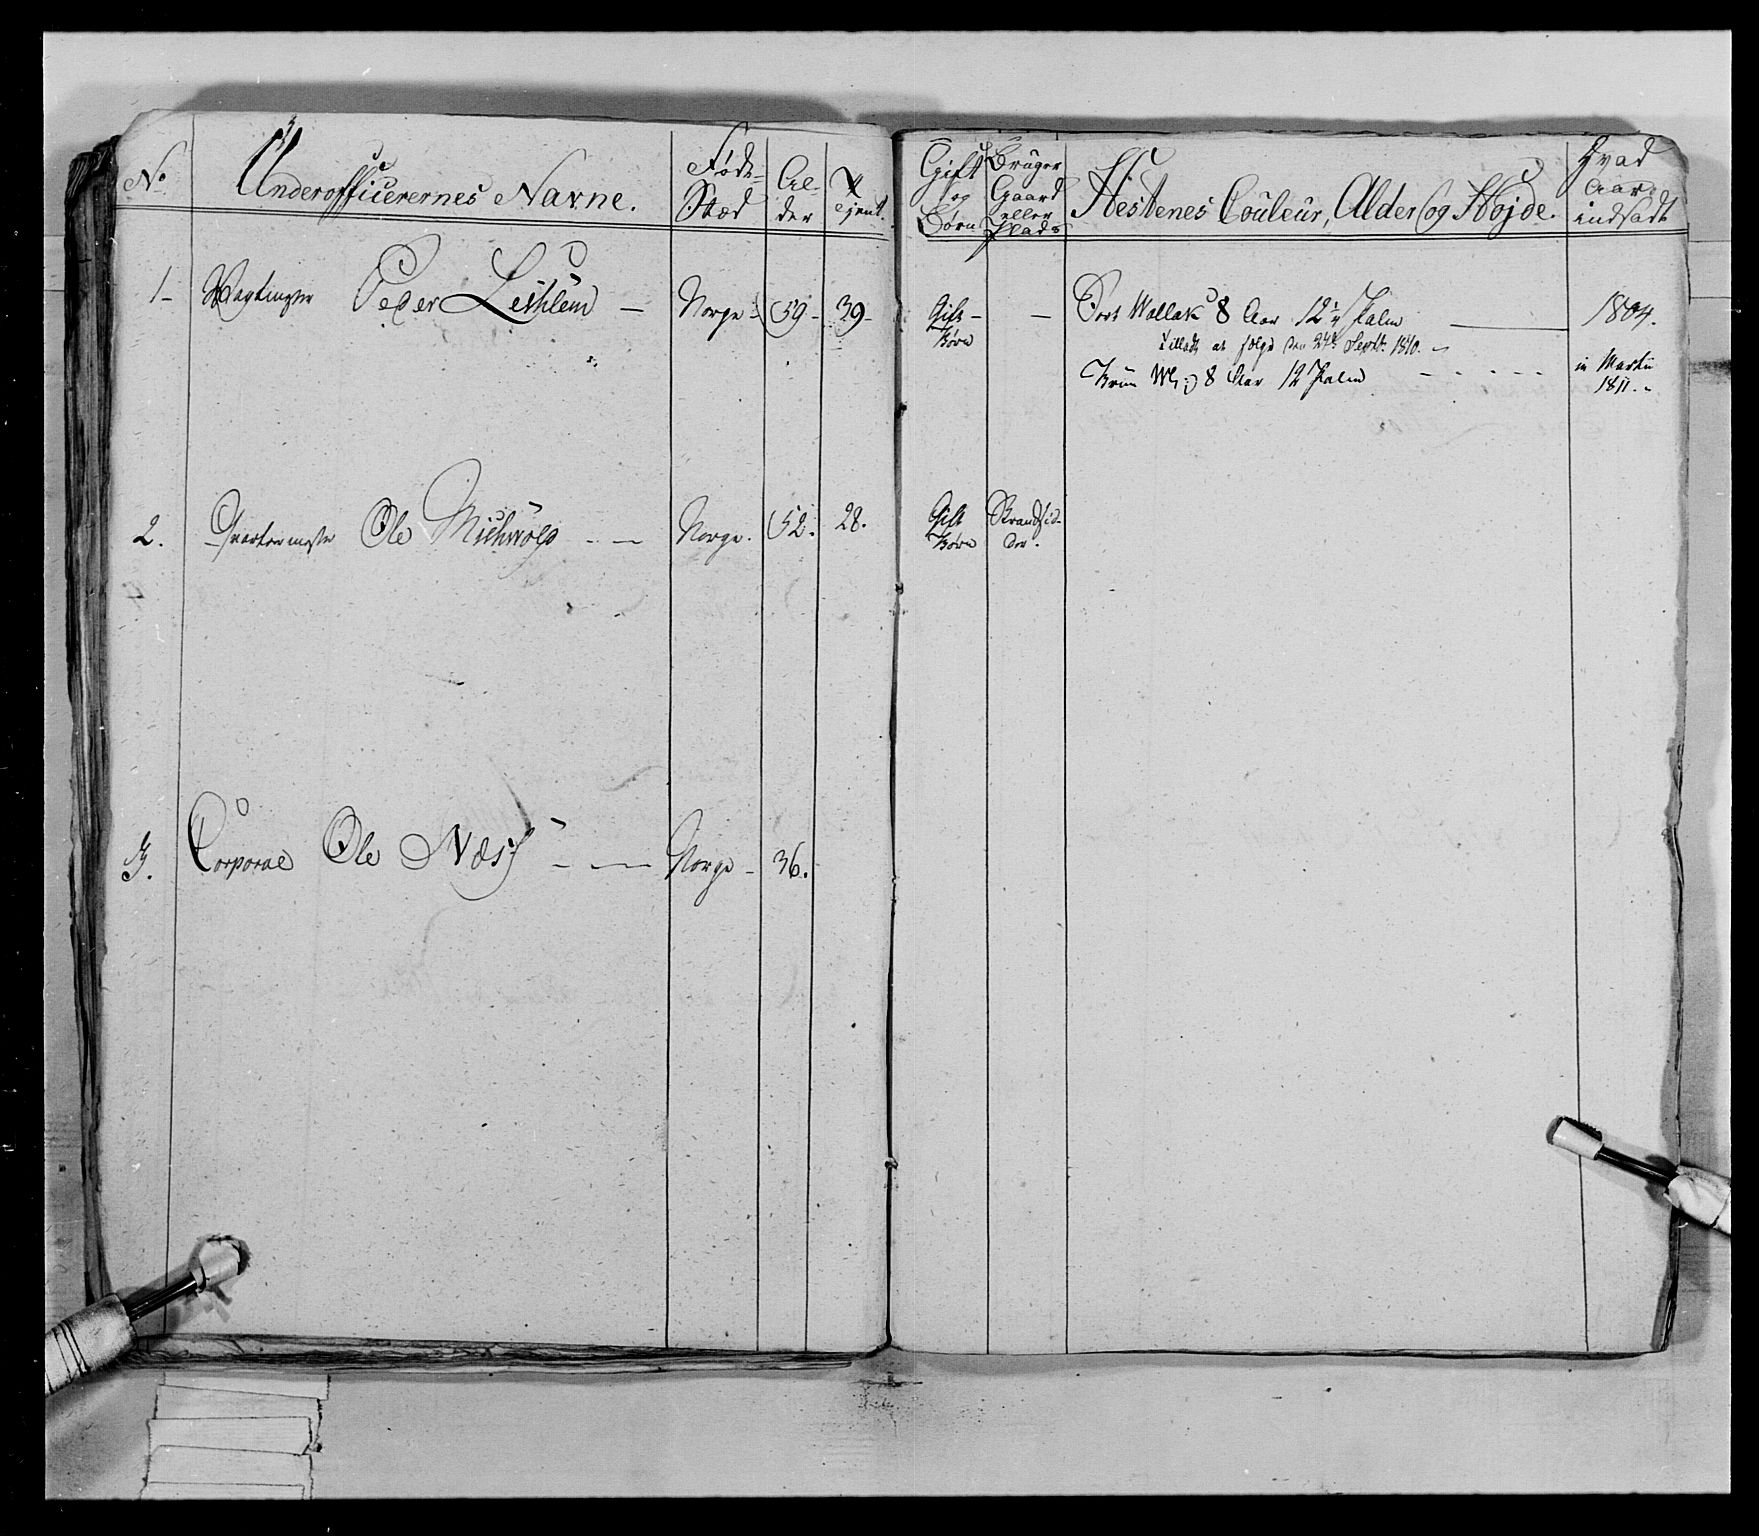 No. Underofficerernes Navne. Føde-Stæd Al-der Tjent. Gift og Børn Bruger Gaard eller Plads Hestenes Couleur, Alder og Højde. Hvad Aar indsadt
1- Vagtmester Peder Lethlem — Norge - 59 - 39 - Gift - Børn — Sort Wallak 8 Aar 12½ Palm — 1804.
Tilladt at sælge den 24de Septbr 1810. -
Brun W: 8 Aar 12 Palm - - - - - in Martii 1811. -
2. Qvarteermester Ole - - — Norge. 52. 28. Gift Børn Strandsid-der.
3. Corporal Ole Næss - - — Norge - 36.